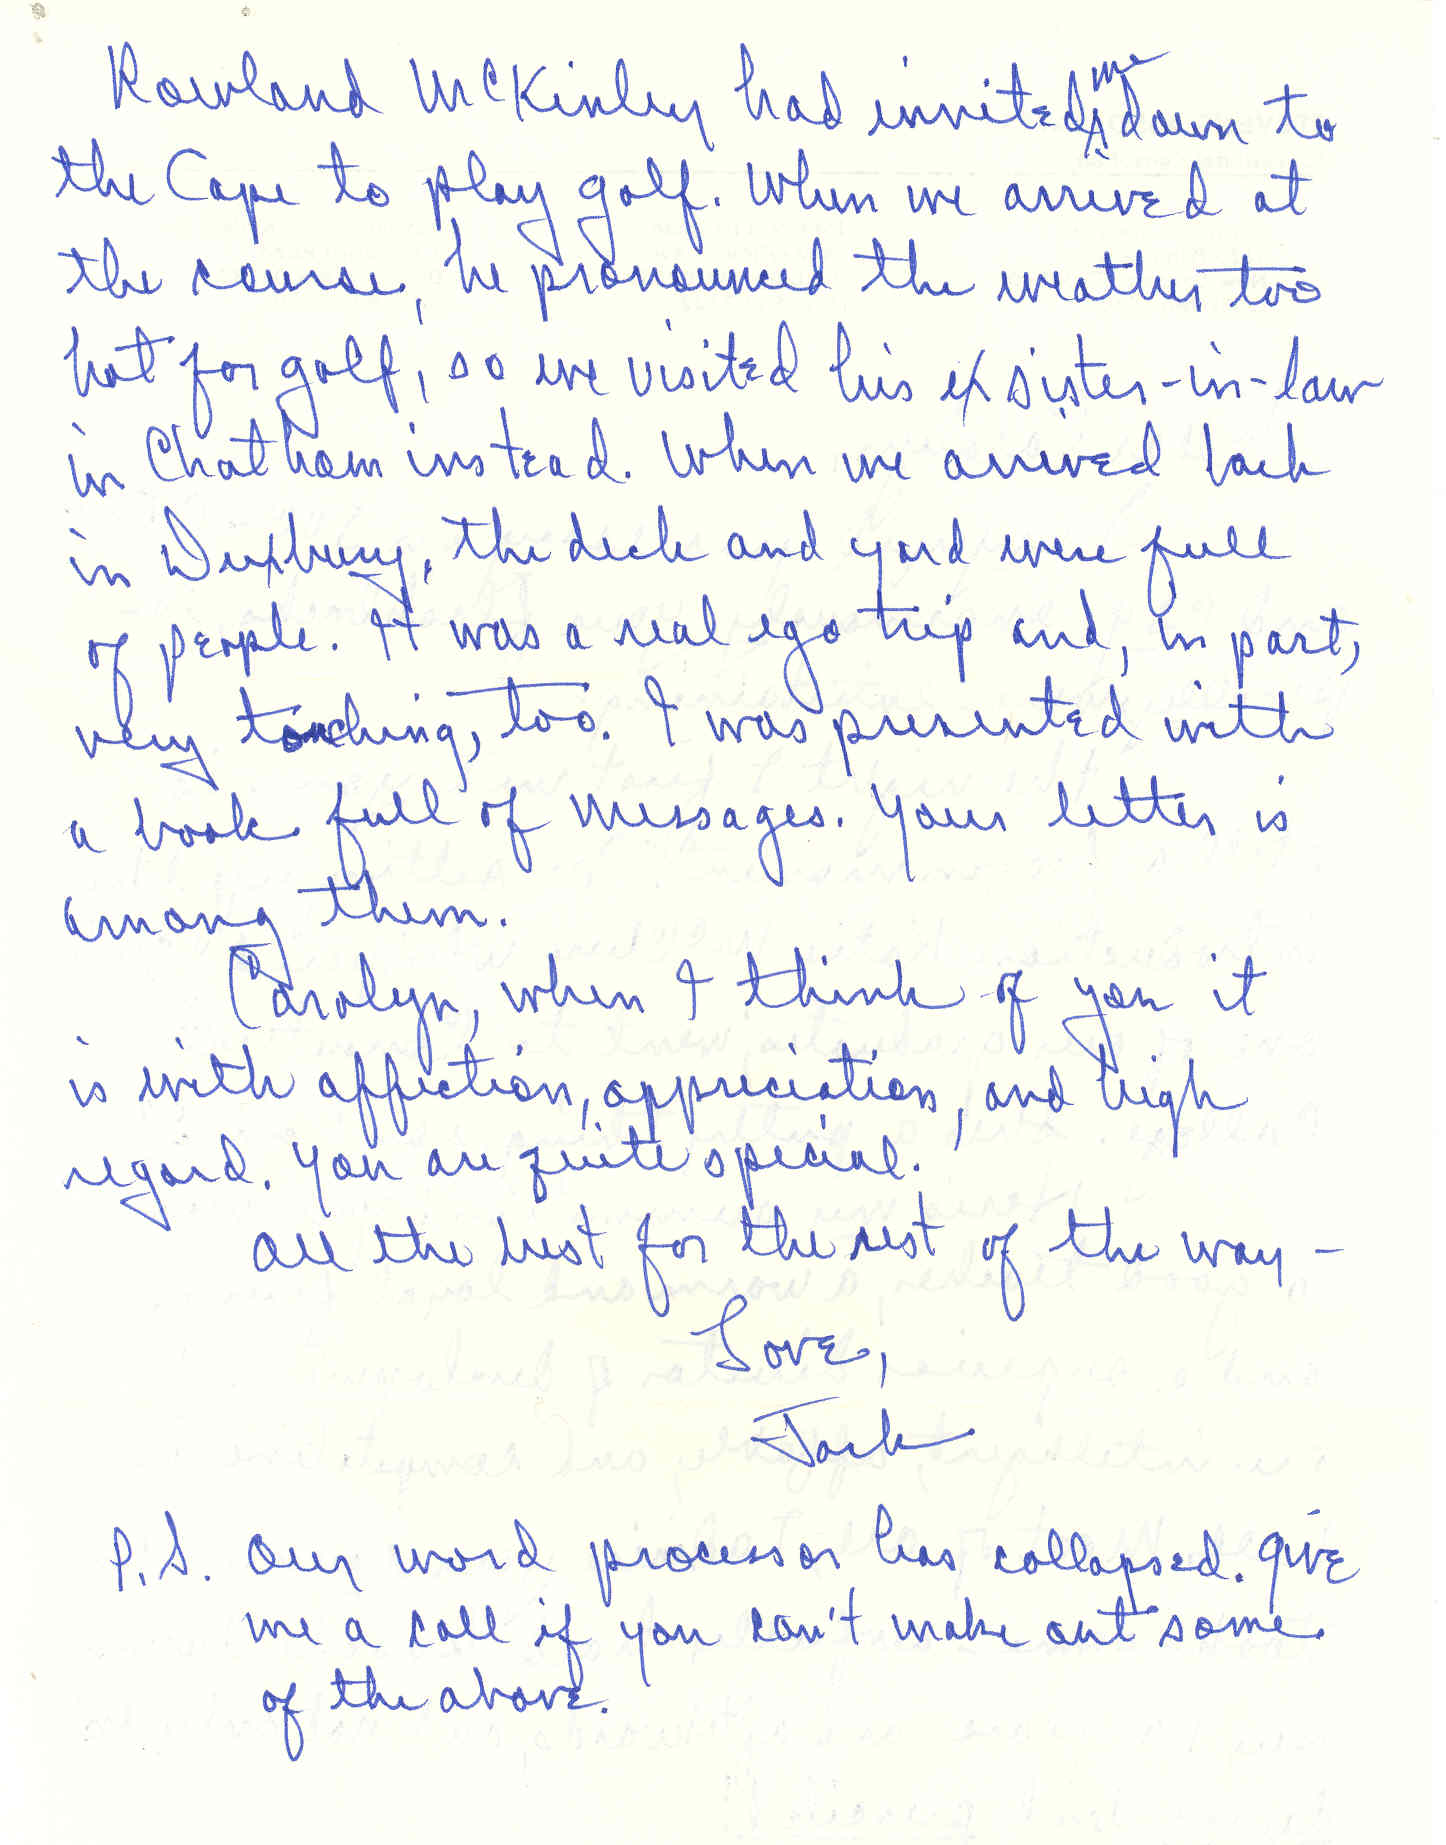 Rowland McKinley had invited me down to
the Cape to play golf. When we arrived at
the course, he pronounced the weather too
hot for golf, so we visited his ex sister-in-law
in Chatham instead. When we arrived back
in Duxbury, the deck and yard were full
of people. It was a real ego trip and, in part,
very touching, too. I was presented with
a book full of messages. Your letter is
among them.
Carolyn, when I think of you it
is with affection, appreciation, and high
regard. You are quite special.
All the best for the rest of the way -
Love,
Jack
P.S. Our word processor has collapsed. Give
me a call if you can't make out some
of the above.